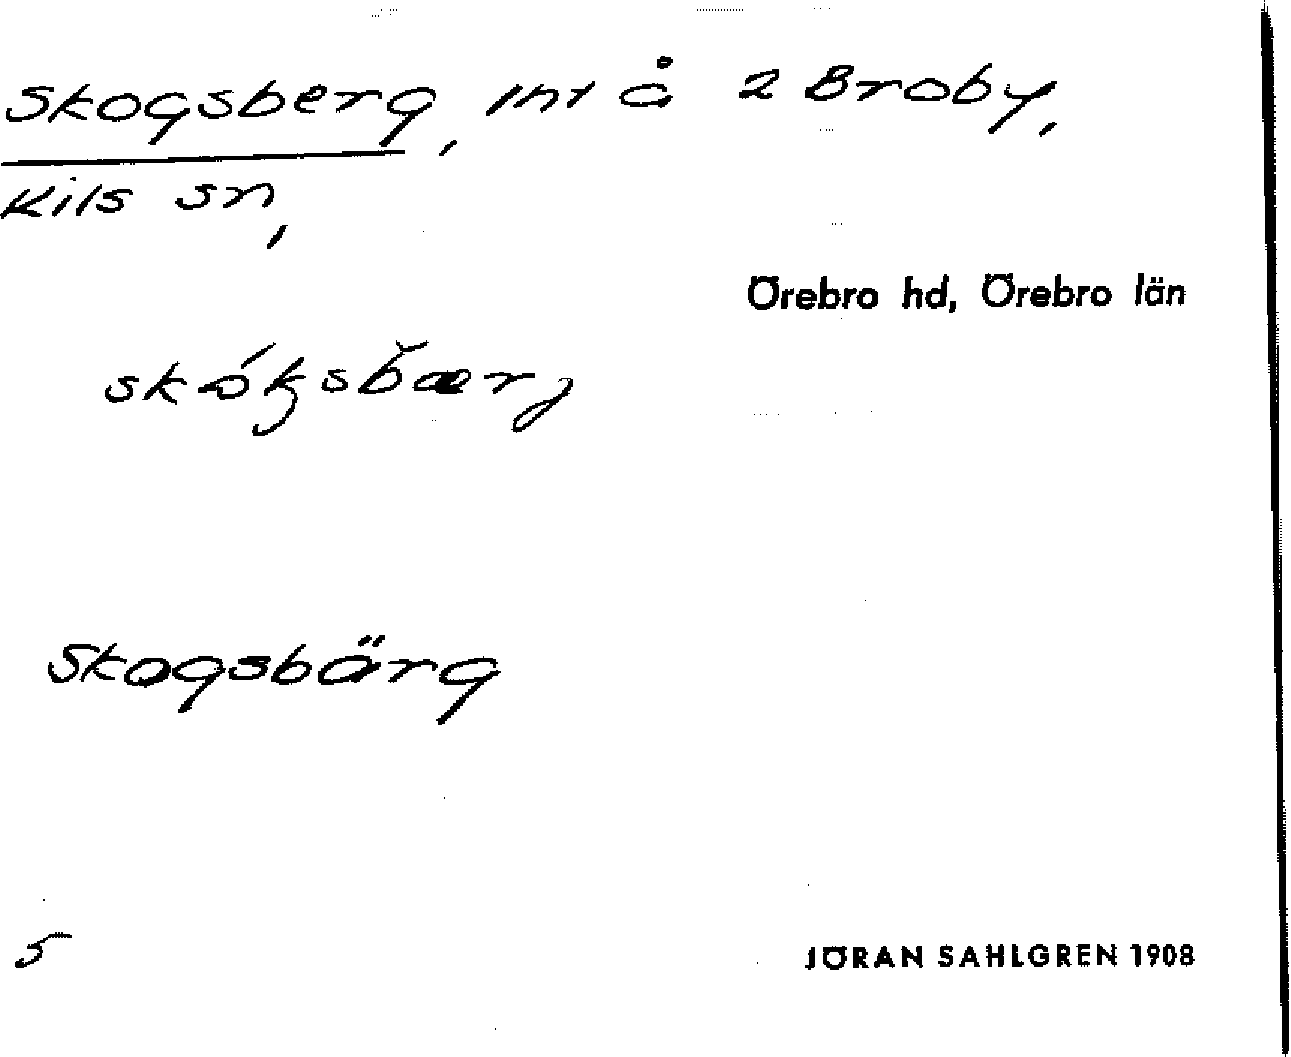 Skogsberg, int å 2 Broby,
Kils sn,
Örebro hd, Örebro län
Skogsbärg
5
JÖRAN SAHLGREN 1908